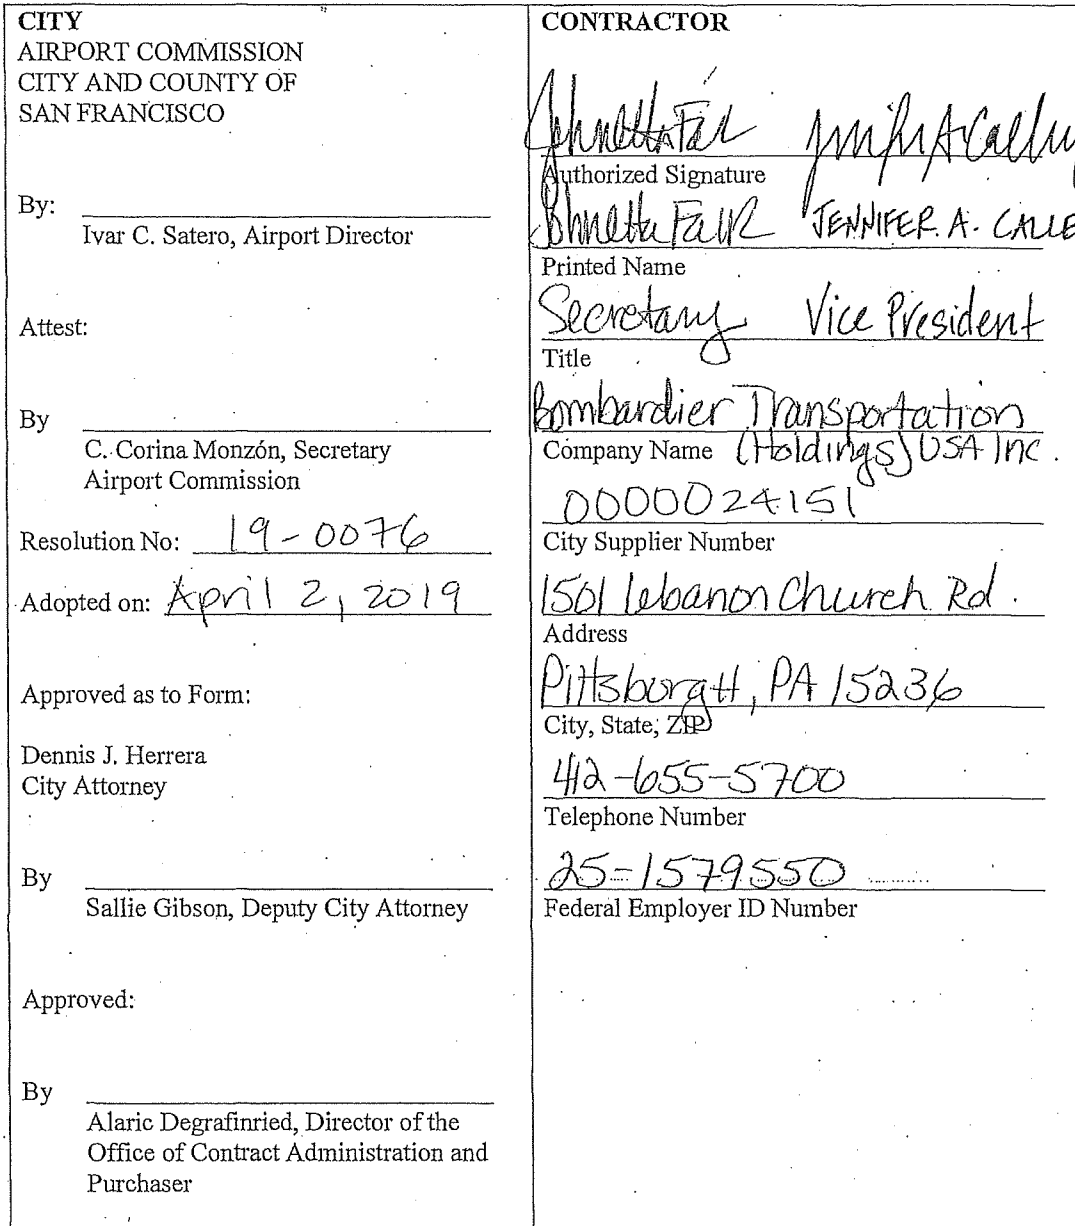 CITY
AIRPORT COMMISSION
CITY AND COUNTY OF
SAN FRANCISCO
By:
Ivar C. Satero, Airport Director
Attest:
By
C. Corina Monzón, Secretary
Airport Commission
Resolution No: 19-0076
Adopted on: April 2, 2019
Approved as to Form:
Dennis J. Herrera
City Attorney
By
Sallie Gibson, Deputy City Attorney
Approved:
By
Alaric Degrafinried, Director of the
Office of Contract Administration and
Purchaser
CONTRACTOR
Johnetta Fair
Authorized Signature
Johnetta Fair JENNIFER A. CALLE
Printed Name
Secretary Vice President
Title
Bombardier Transportation
Company Name (Holdings) USA Inc.
0000024151
City Supplier Number
1501 Lebanon Church Rd.
Address
Pittsburgh, PA 15236
City, State, ZIP
412-655-5700
Telephone Number
25-1579550
Federal Employer ID Number